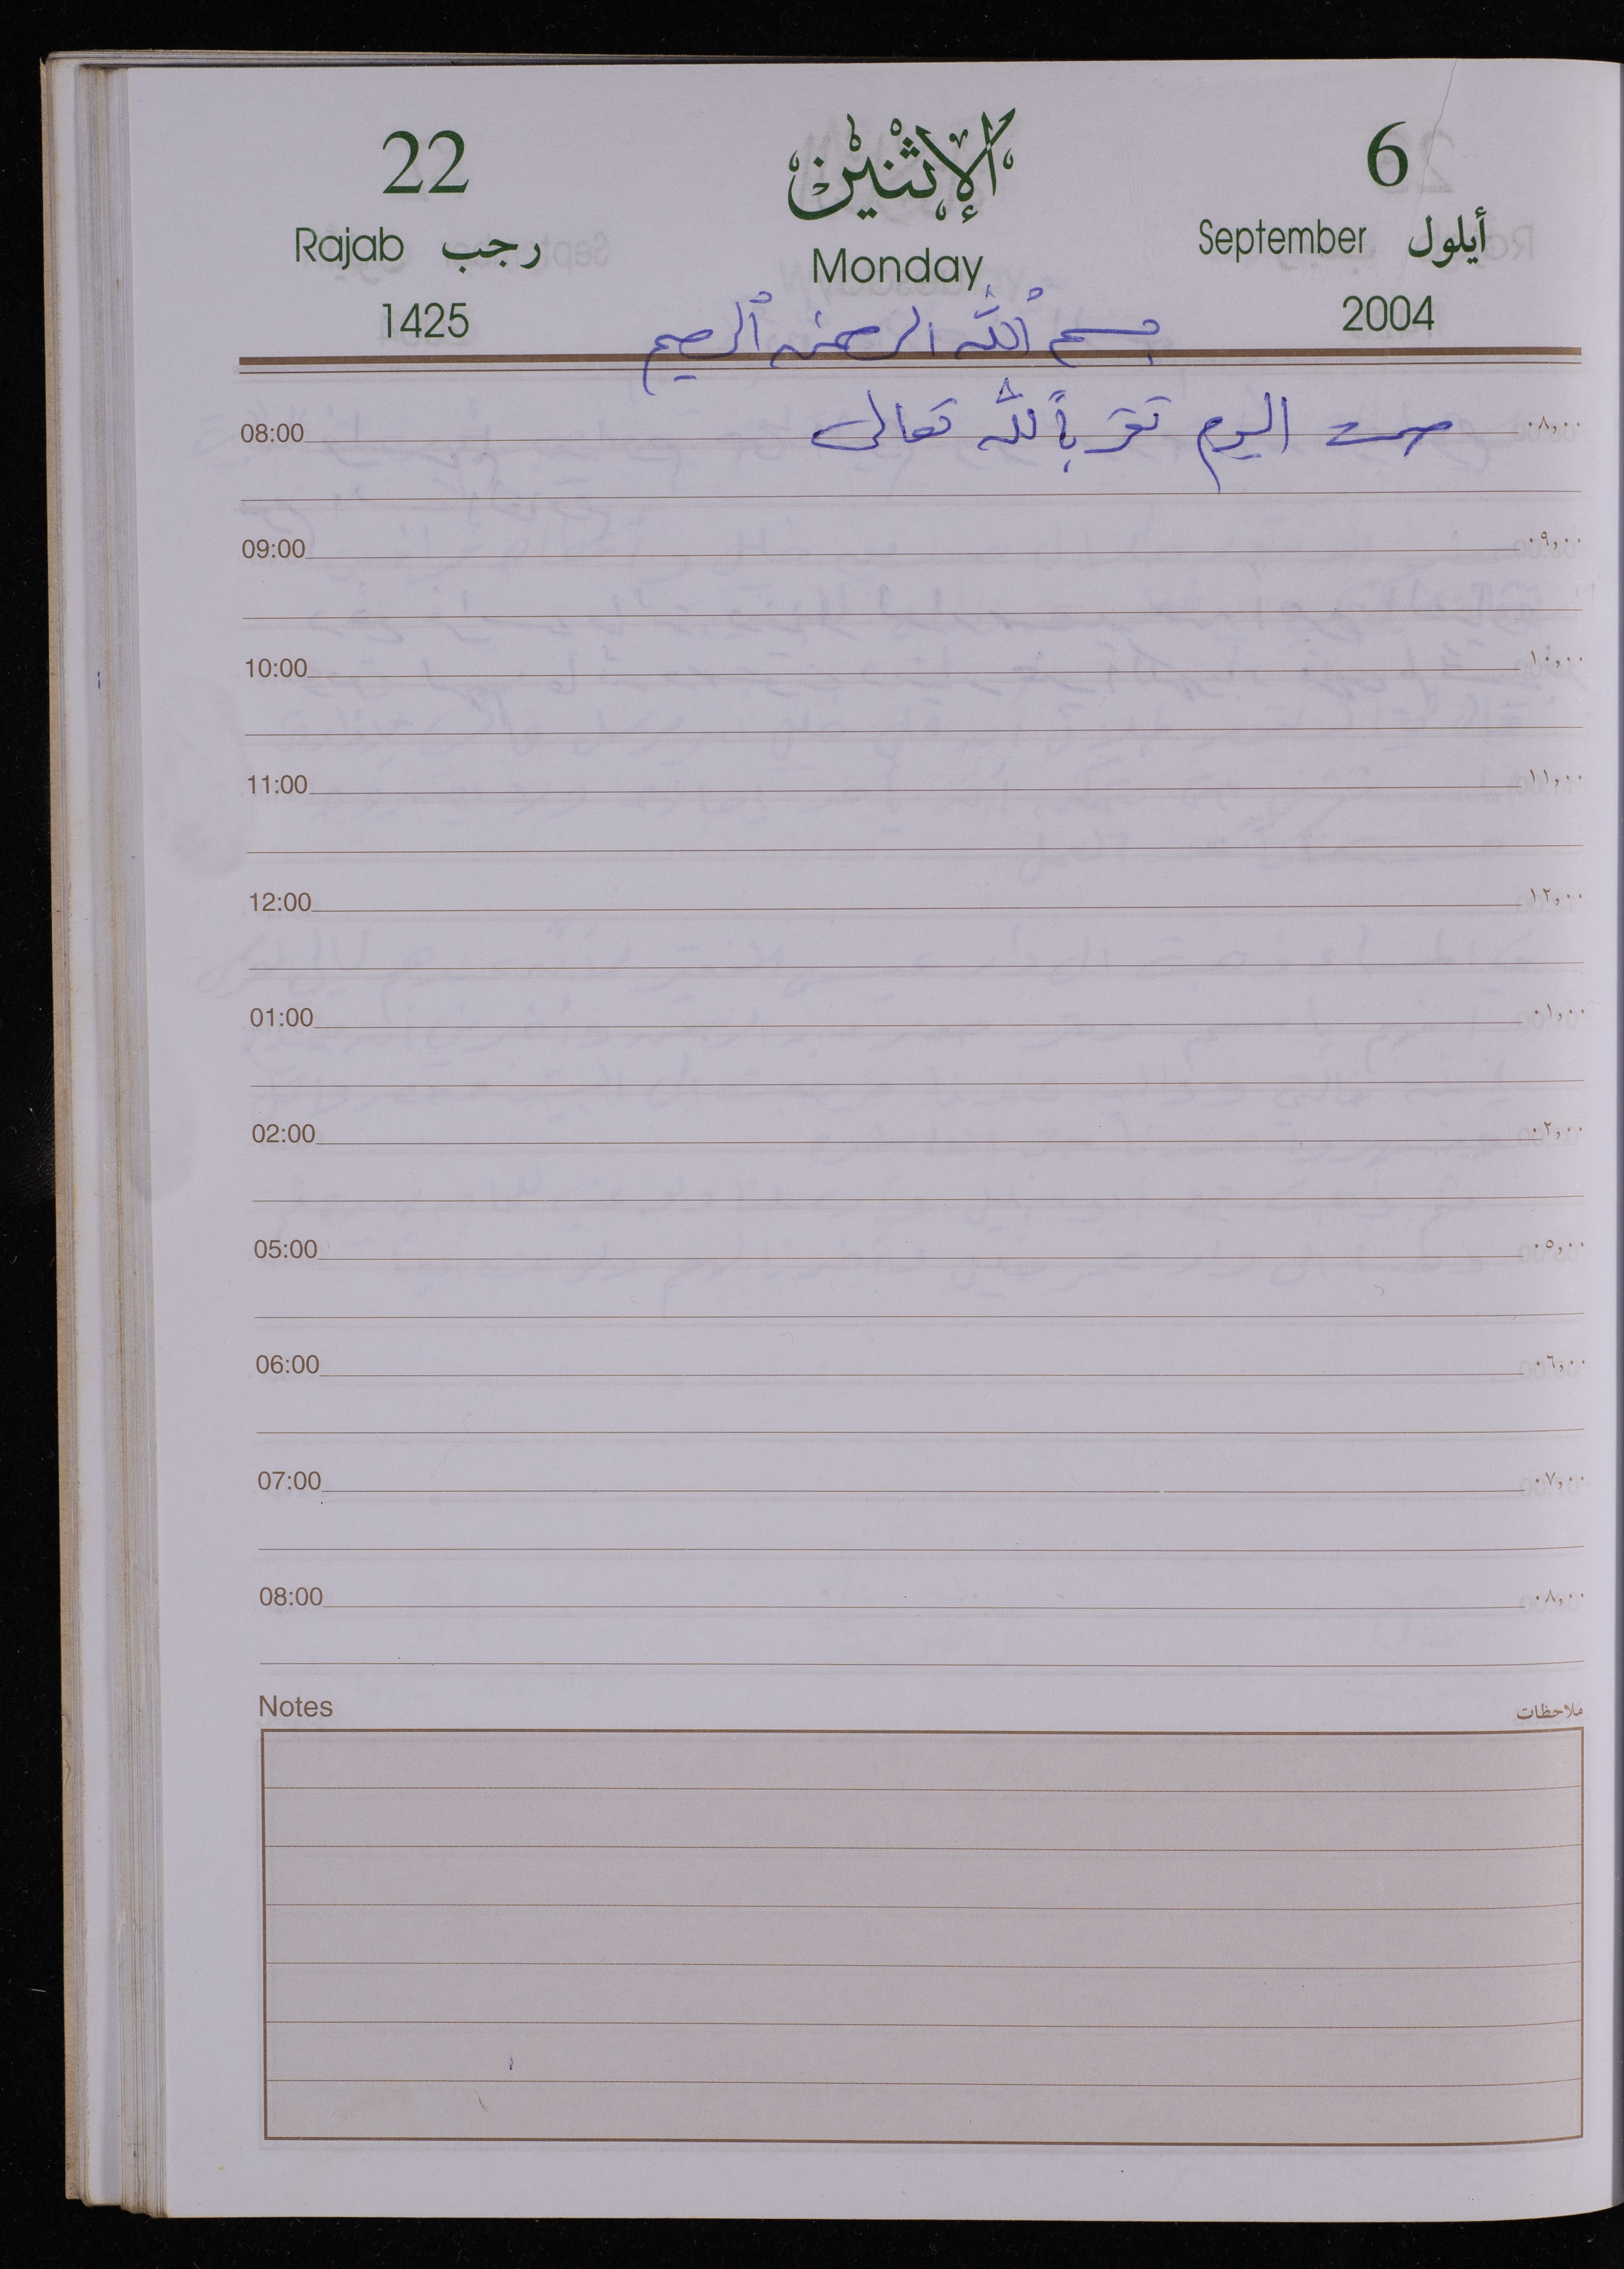 6 الإثنين 22
September أيلول Monday Rajab رجب
2004 1425
بسم الله الرحمن الرحيم
صمت اليوم تقرباً لله تعالى
08:00 ٠٨,٠٠
09:00 ٠٩,٠٠
10:00 ١٠,٠٠
11:00 ١١,٠٠
12:00 ١٢,٠٠
01:00 ٠١,٠٠
02:00 ٠٢,٠٠
05:00 ٠٥,٠٠
06:00 ٠٦,٠٠
07:00 ٠٧,٠٠
08:00 ٠٨,٠٠
Notes ملاحظات